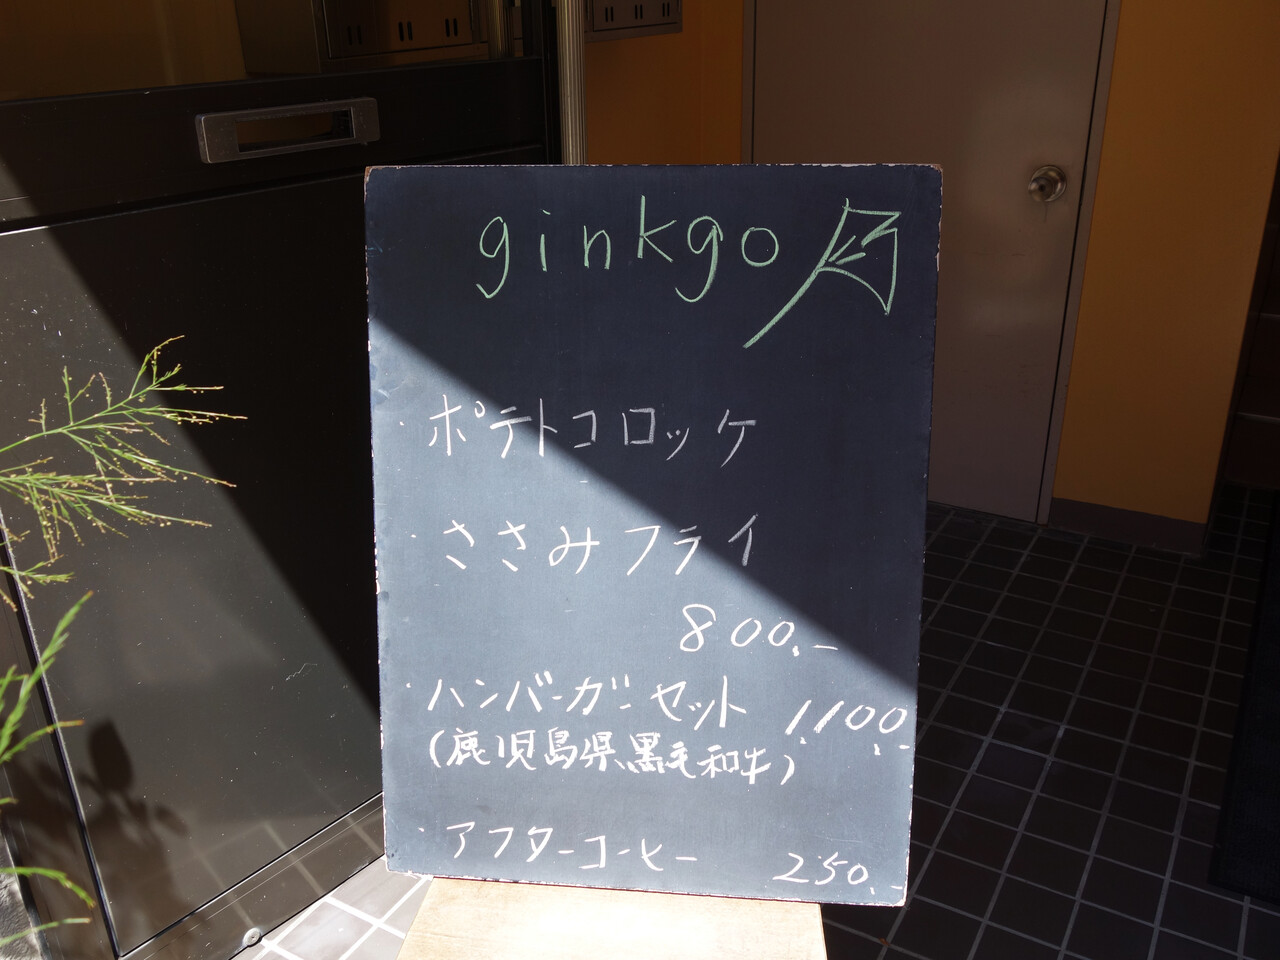 ginkgo
・ポテトコロッケ
・ささみフライ
800.-
・ハンバーガーセット 1,100.-
(鹿児島県黒毛和牛)
・アフターコーヒー 250.-